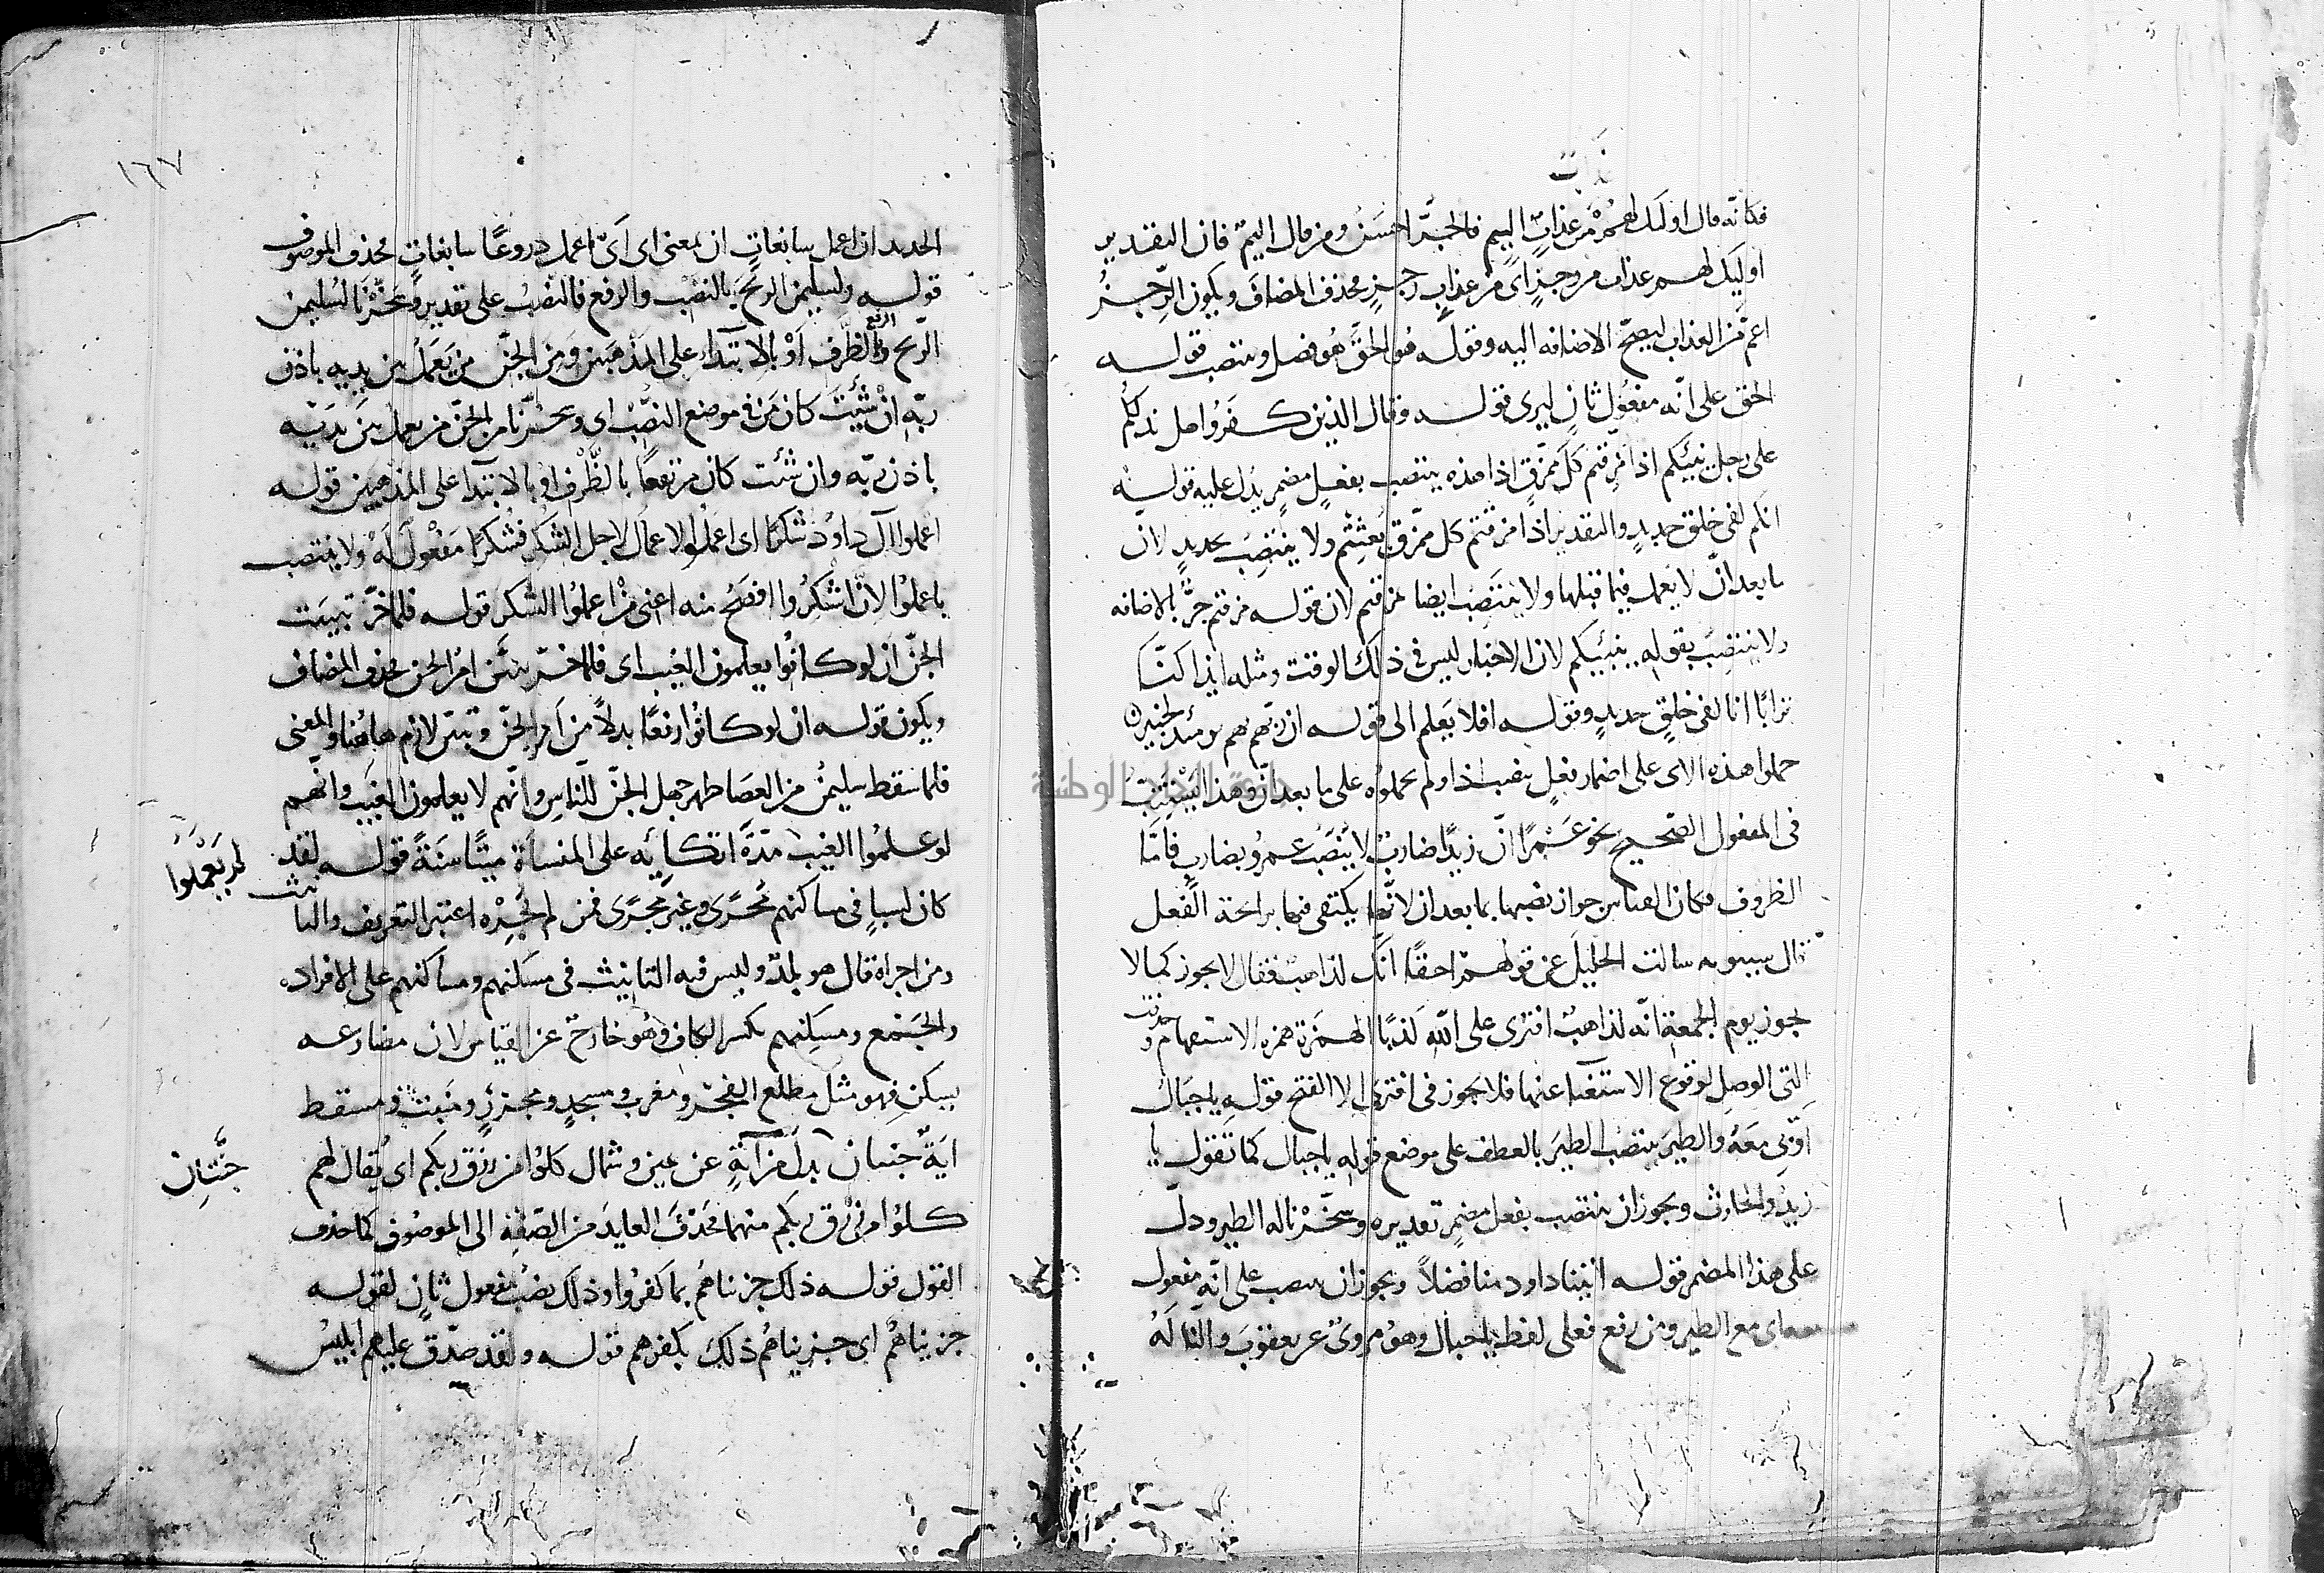 فكانه قال اولئك لهم من عذاب اليم فالجر احسن ومن قال اليم فان التقدير
اوليك لهم عذاب من رجز اى من عذاب رجز فحذف المضاف ويكون الرجز
اعم من العذاب ليصح الاضافه اليه وقوله هو الحق هو فصل وينتصب قوله
الحق على انه مفعول ثان ليرى قوله وقال الذين كفروا هل ندلكم
على رجل ينبئكم اذا مزقتم كل ممزق اذا هذه ينتصب بفعل مضمر يدل عليه قوله
انكم لفى خلق جديد والتقدير اذا مزقتم كل ممزق بعثتم ولا ينتصب بجديد لان
ما بعد ان لا يعمل فيما قبلها ولا ينتصب ايضا بمزقتم لان قوله مزقتم جر بالاضافه
ولا ينتصب بقوله ينبئكم لان الاخبار ليس فى ذلك الوقت ومثله ائذا كنا
ترابا انا لفى خلق جديد وقوله افلا يعلم الى قوله ان ربهم بهم يومئذ لخبير
حملوا هذه الاى على اضمار فعل ينصب اذا ولم يحملوه على ما بعد ان وهذا
فى المفعول الصحيح نحو عمرا ان زيدا ضارب لا ينصب عمرو بضارب فاما
الظروف فكان القياس جواز نصبها بما بعد ان لانها يكتفى فيها برائحة الفعل
قال سيبويه سالت الخليل عن قولهم احقا انك لذاهب فقال لا يجوز كما لا
يجوز يوم الجمعة انه لذاهب افترى على الله كذبا الهمزة همزه الاستفهام وحذفت
التى الوصل لوقوع الاستغنا عنها فلا يجوز فى افترى الا الفتح قوله يا جبال
اوبى معه والطير ينتصب الطير بالعطف على موضع قوله يا جبال كما تقول يا
زيد والحارث ويجوز ان ينتصب بفعل مضمر تقديره وسخرنا له الطير ودل
على هذا المضمر قوله اتينا داود منا فضلا ويجوز ان ينتصب على انه مفعول
معه اى مع الطير ومن رفع فعلى لفظ يا جبال وهو مروى عن يعقوب والنا له
١٦٧
الحديد ان اعمل سابغات ان بمعنى اى اى اعمل دروعا سابغات فحذف الموصوف
قوله ولسليمن الريح بالنصب والرفع فالنصب على تقدير وسخرنا لسليمن
الريح والرفع بالظرف او بالابتداء على المذهبين ومن الجن من يعمل بين يديه باذن
ربه ان شئت كان من فى موضع النصب اى وسخرنا من الجن من يعمل بين يديه
باذن ربه وان شئت كان مرتفعا بالظرف او بالابتدآ على المذهبين قوله
اعملوا آل داود شكرا اى اعملوا الاعمال لاجل الشكر فشكرا مفعول له ولا ينتصب
باعملوا لان اشكروا افصح منه اعنى من اعملوا الشكر قوله فلما خر تبينت
الجن ان لو كانوا يعلمون الغيب اى فلما خر تبين امر الجن فحذف المضاف
ويكون قوله ان لو كانوا رفعا بدلا من امر الجن وتبين لازم هاهنا والمعنى
فلما سقط سليمن من العصا ظهر جهل الجن للناس وانهم لا يعلمون الغيب وانهم
لو علموا الغيب مدة اتكائه على المنسأة ميتا سنة قوله لقد
لم يعملوا
كان لسبإ فى مساكنهم مجرى وغير مجرى فمن لم يجره اعتبر التعريف والتانيث
ومن اجراه قال هو بلد وليس فيه التانيث فى مسكنهم ومساكنهم على الافراد
والجمع ومسكنهم بكسر الكاف وهو خارج عن القياس لان مضارعه
يسكن فهو مثل مطلع الفجر ومغرب ومسجد ومجزر ومنبت ومسقط
اية جنتان بدل من آية عن يمين وشمال كلوا من رزق ربكم اى يقال لهم
جنتان
كلوا من رزق ربكم منهما فحذف العايد من الصفه الى الموصوف كما حذف
القول قوله ذلك جزيناهم بما كفروا وذلك نصب مفعول ثان لقوله
جزيناهم اى جزيناهم ذلك بكفرهم قوله ولقد صدق عليهم ابليس